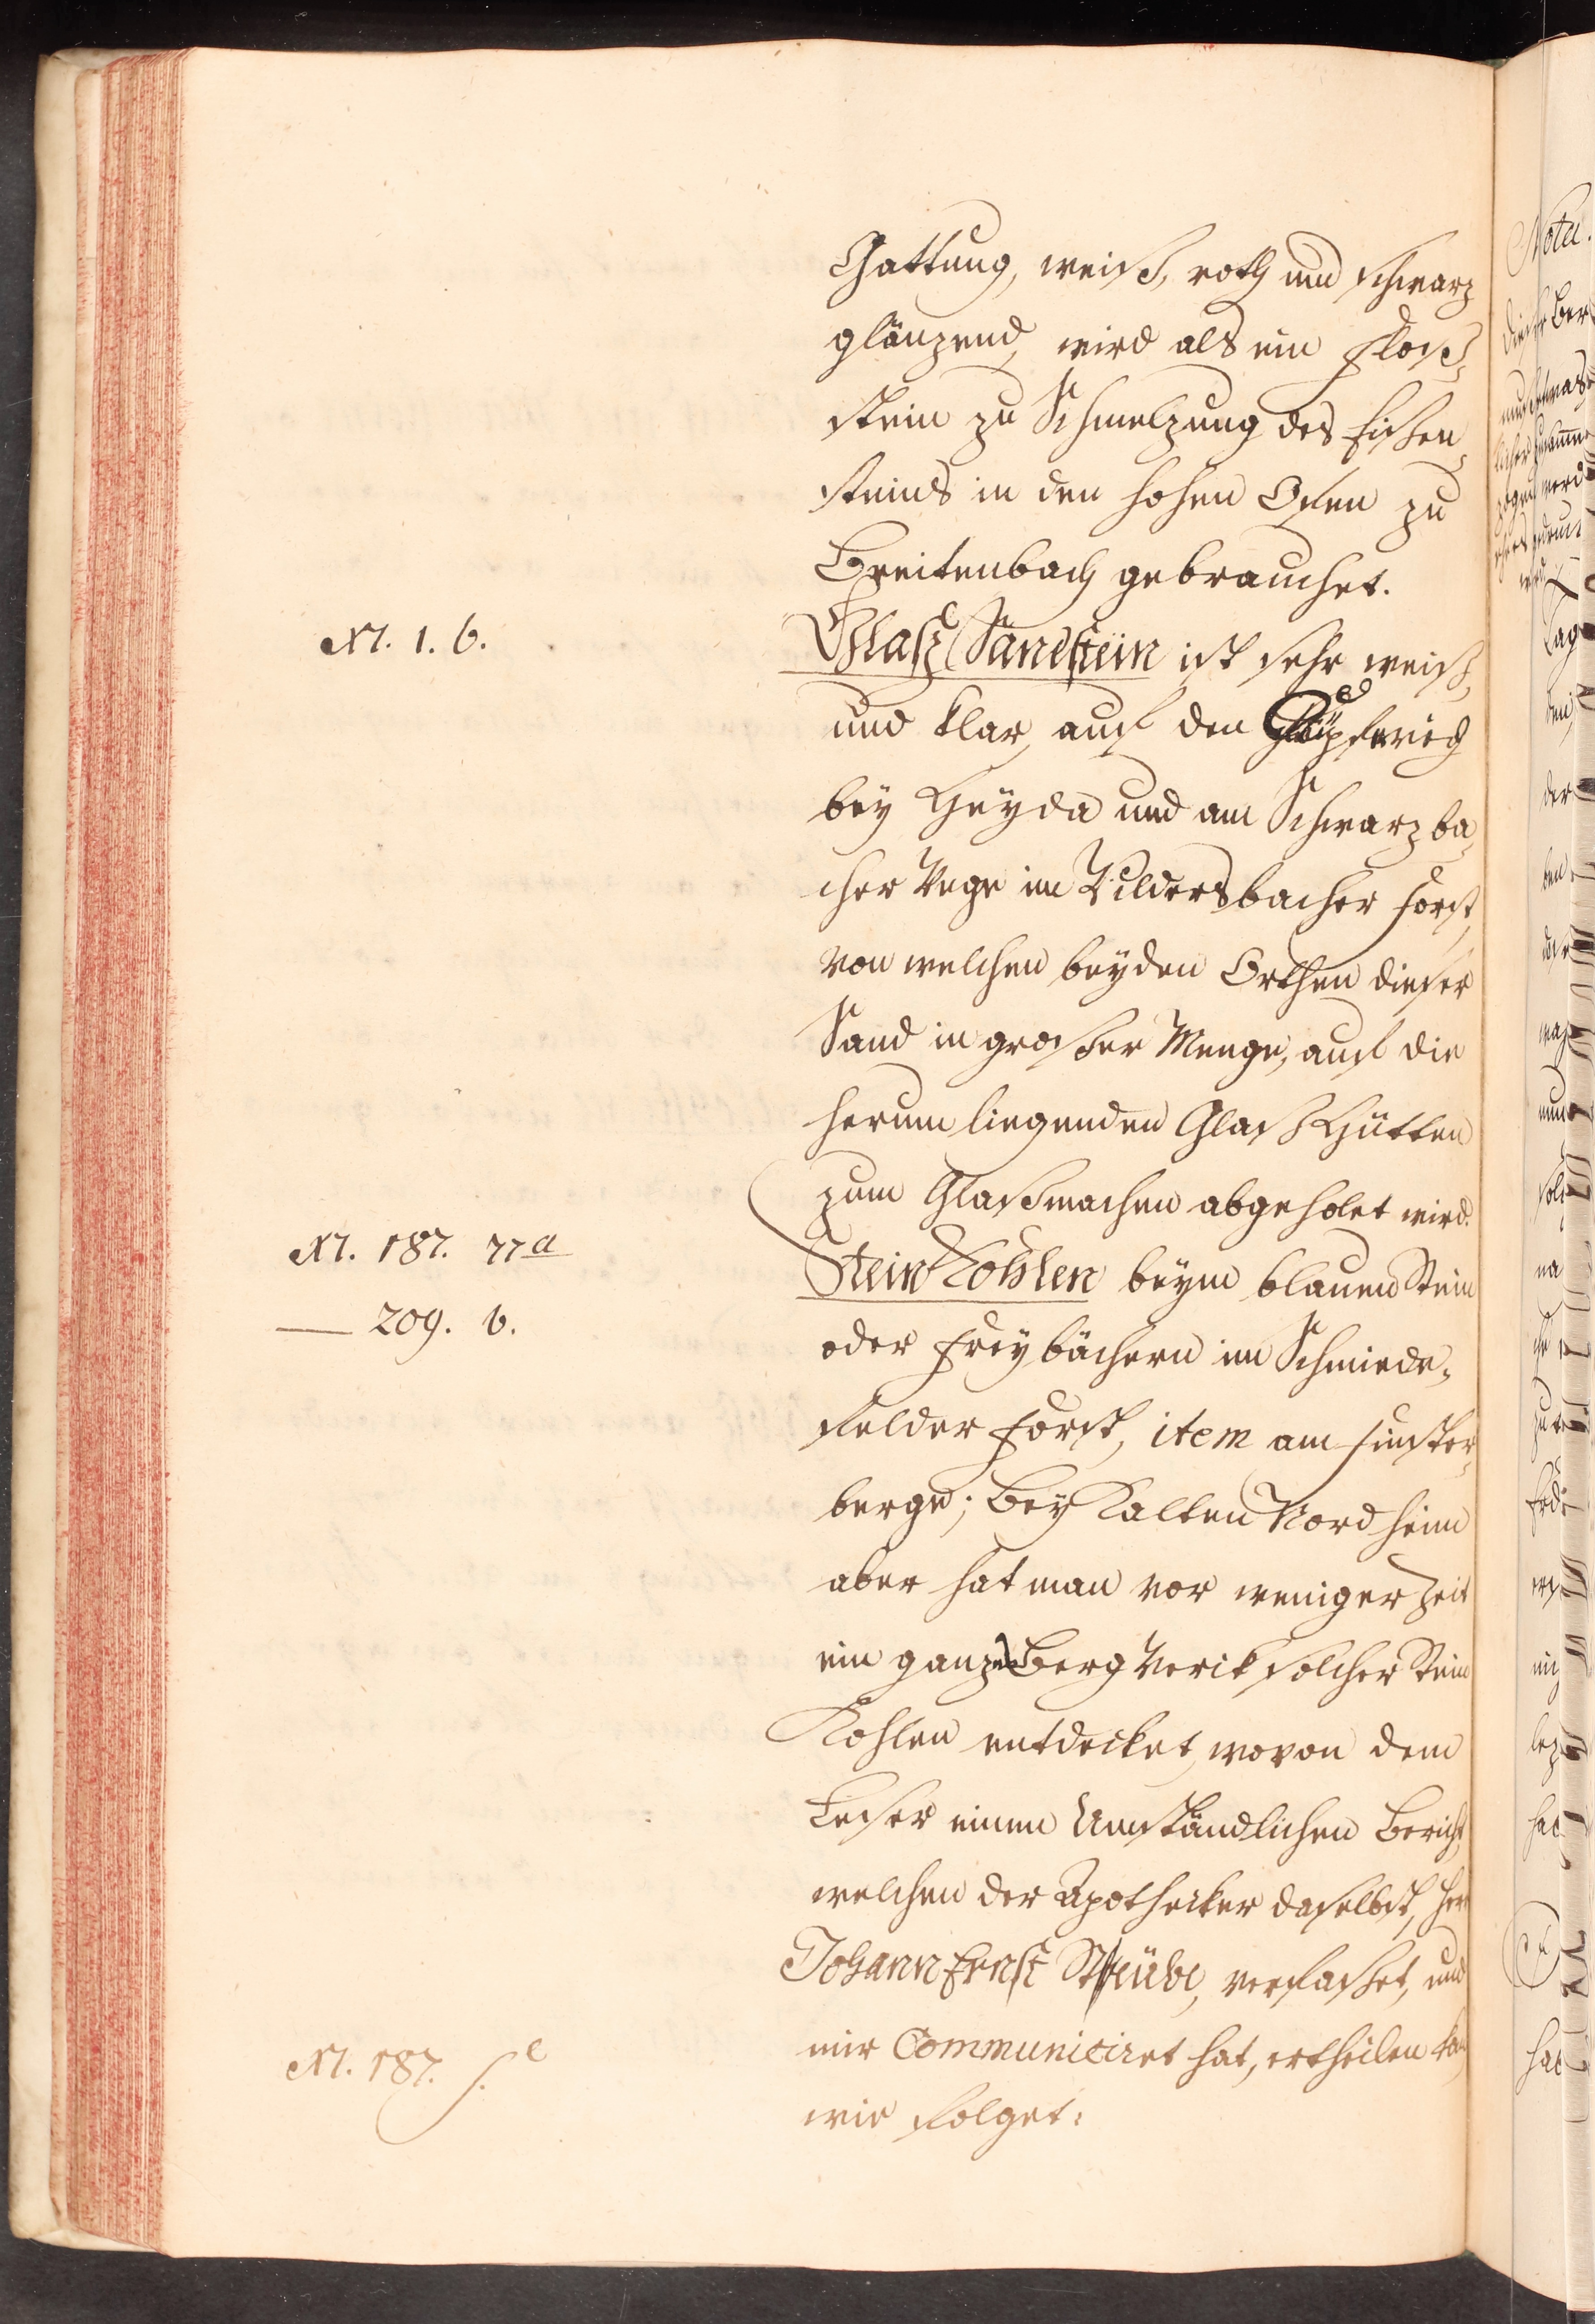 Gattung, weiß, roth und schwarz
glänzend, wird als ein Floß-
stein zu Schmelzung des Eißen-
steins in den hohen Ofen zu
Breitenbach gebrauchet.
N. 1. b.
Glaß Sandstein ist sehr weiß,
und klar, auf den
bey Heyda und am Schwarzba-
cher Wege im Vildersbacher Forst,
von welchen beyden Orthen dieser
Sand in großer Menge, auf die
herum liegenden Glaß Hütten
zum Glaßmachen abgeholet wird.
N. 187. 77 a
Stein Kohlen beym blauen Stein
— 209. b.
oder Freybächern im Schmiede-
felder Forst, item am Finster-
berge; Bey Kalten Nordheim
aber hat man vor weniger Zeit
ein ganzes Berg Werck solcher Stein
Kohlen entdecket, wovon dem
Leser einen Umständlichen Bericht,
welchen der Apothecker daselbst, Herr
Johann Ernst Strübe, verfasset, und
N. 187. f. e
mir Communiciret hat, ertheilen kan,
wie folget: